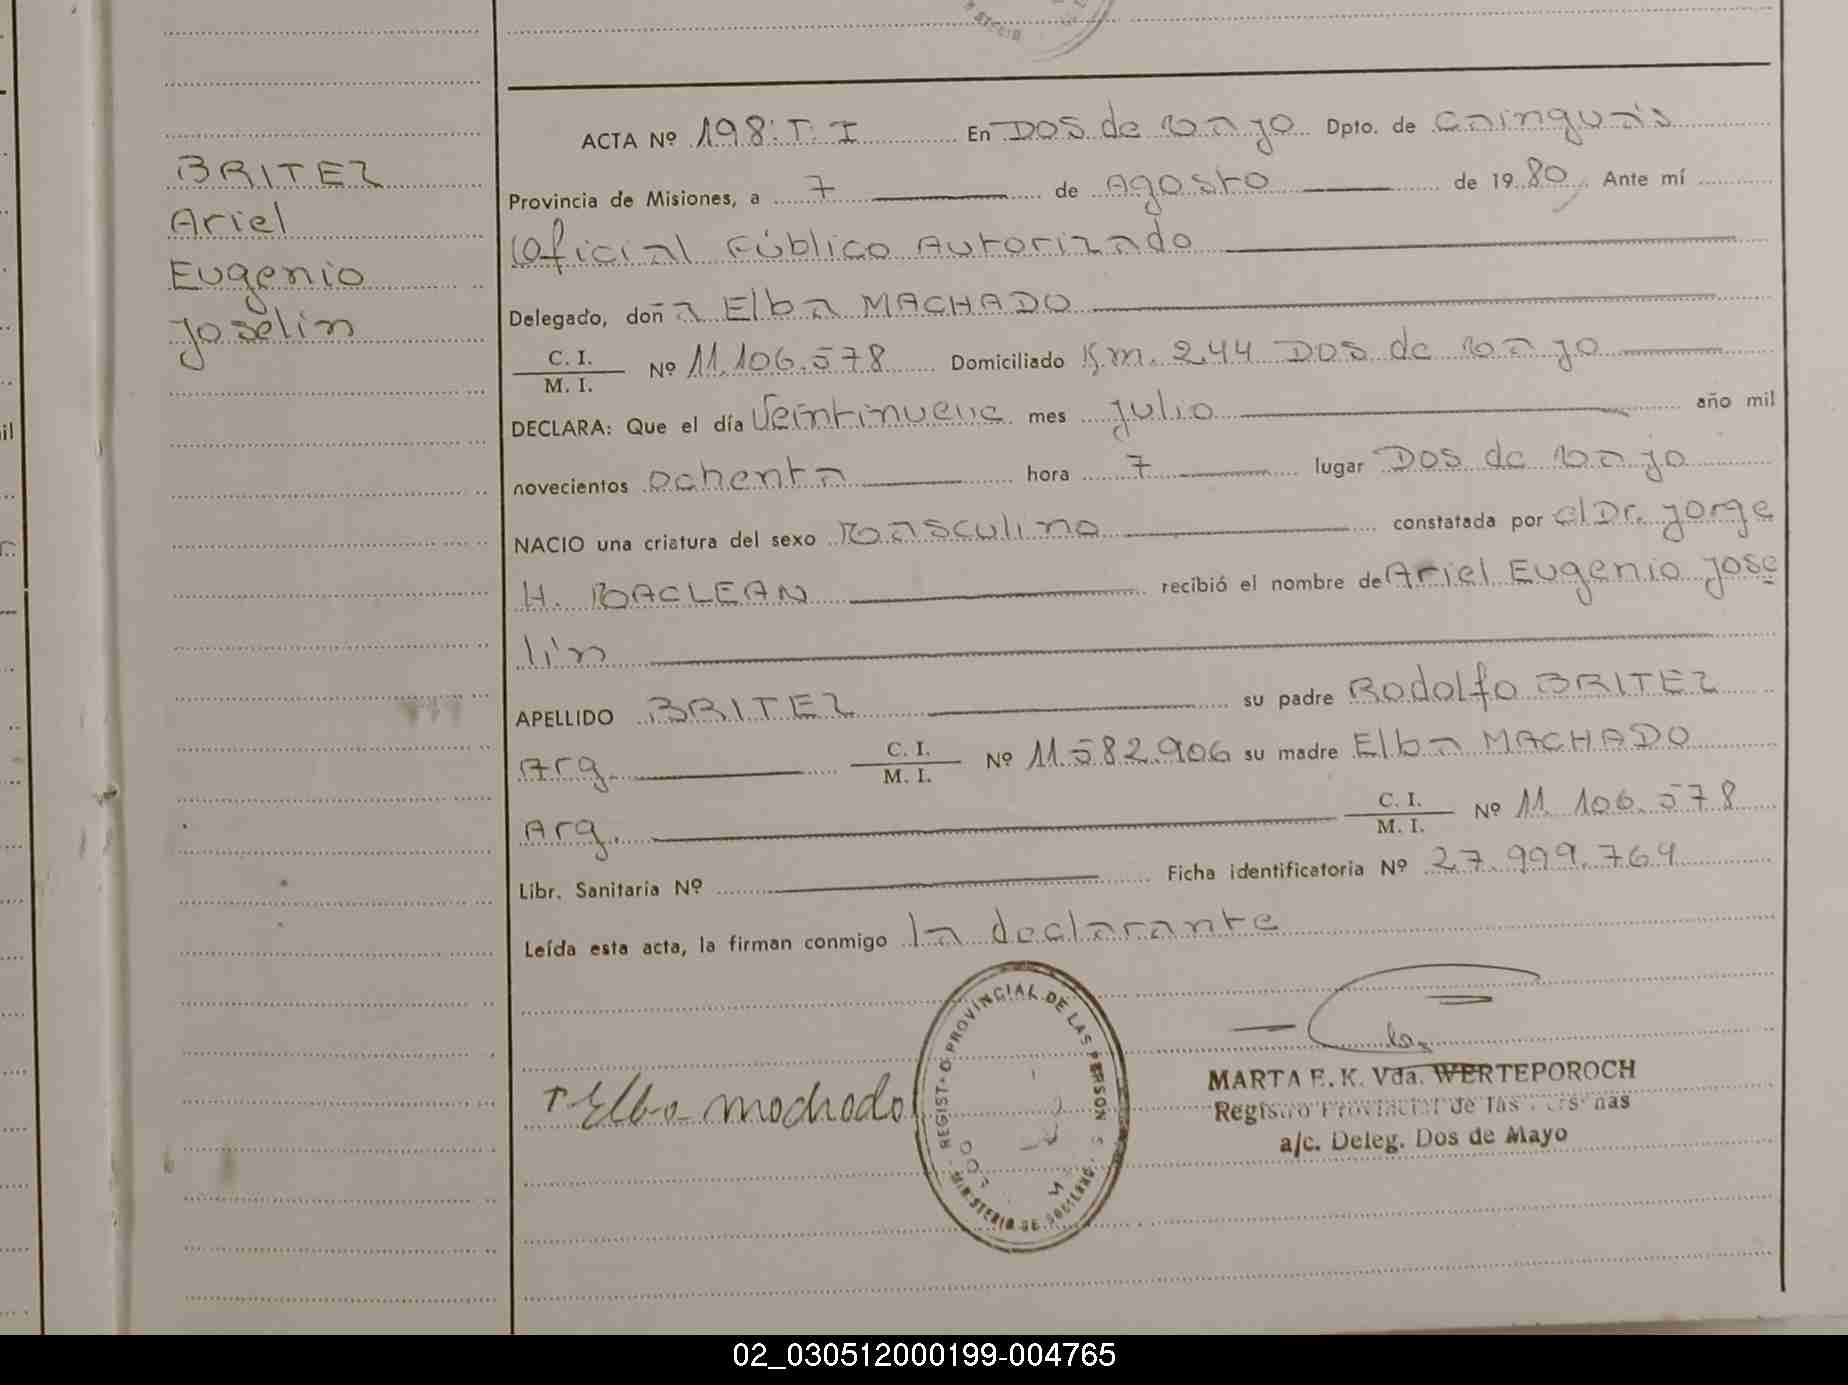 BRITEZ
Ariel
Eugenio
Joselin
ACTA Nº 198. T. I En Dos de Mayo Dpto. de Cainguás
Provincia de Misiones, a 7 de Agosto de 1980, Ante mí
Oficial Público Autorizado
Delegado, doña Elba MACHADO
C. I.
M. I.
Nº 11.106.578 Domiciliado Km. 244 Dos de Mayo
DECLARA: Que el día Veintinueve mes Julio año mil
novecientos ochenta hora 7 lugar Dos de Mayo
NACIO una criatura del sexo Masculino constatada por el Dr. Jorge
H. MACLEAN recibió el nombre de Ariel Eugenio Jose
lín
APELLIDO BRITEZ su padre Rodolfo BRITEZ
Arg. C. I.
M. I.
Nº 11.582.906 su madre Elba MACHADO
Arg. C. I.
M. I.
Nº 11.106.578
Libr. Sanitaria Nº Ficha identificatoria Nº 27.999.764
Leída esta acta, la firman conmigo la declarante
Elba Machado
REGISTRO PROVINCIAL DE LAS PERSONAS
MINISTERIO DE
MARTA E. K. Vda. WERTEPOROCH
Registro Provincial de las Personas
a/c. Deleg. Dos de Mayo
02_030512000199-004765